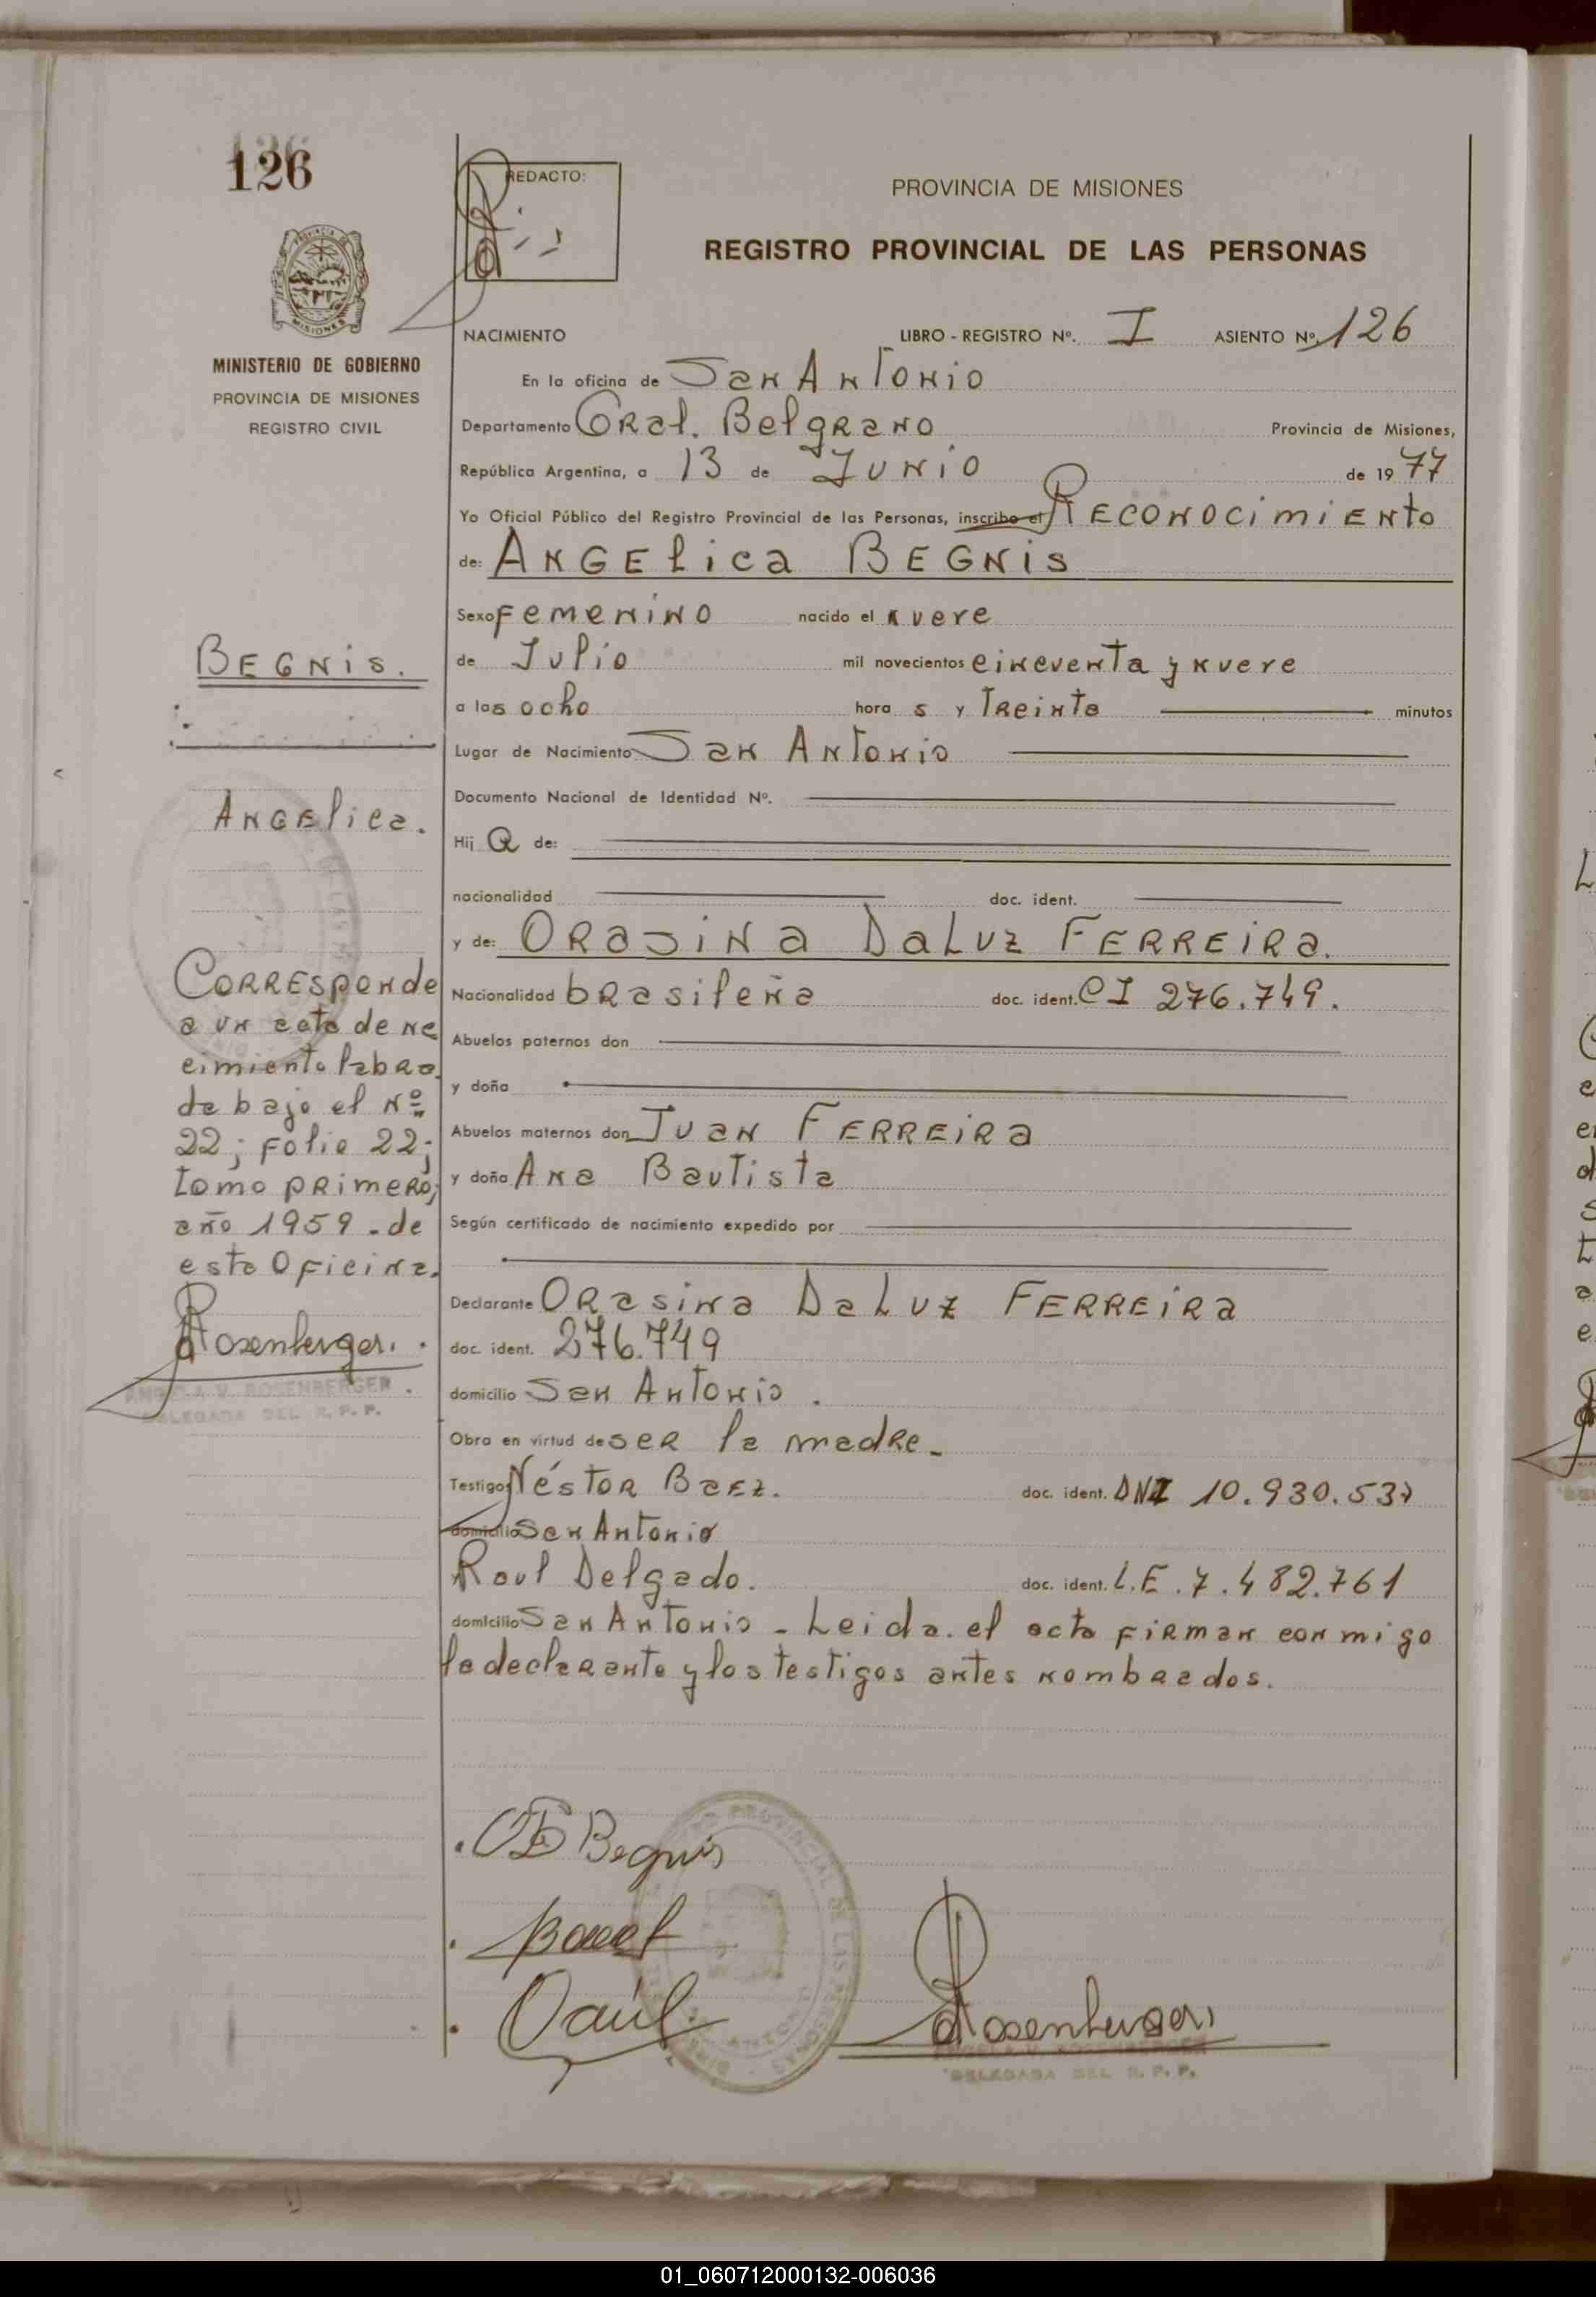 126
REDACTO:
PROVINCIA DE MISIONES
REGISTRO PROVINCIAL DE LAS PERSONAS
MINISTERIO DE GOBIERNO
PROVINCIA DE MISIONES
REGISTRO CIVIL
NACIMIENTO LIBRO - REGISTRO Nº. I ASIENTO Nº. 126
En la oficina de San Antonio
Departamento Gral. Belgrano Provincia de Misiones,
República Argentina, a 13 de Junio de 1977
Yo Oficial Público del Registro Provincial de las Personas, inscribo el Reconocimiento
de: Angelica Begnis
Sexo Femenino nacido el nueve
de Julio mil novecientos cincuenta y nueve
a las ocho hora s y Treinta minutos
Lugar de Nacimiento San Antonio
Documento Nacional de Identidad Nº.
Hij a de:
nacionalidad doc. ident.
y de: Orasina Da Luz Ferreira.
Nacionalidad brasileña doc. ident. CI 276.749.
Abuelos paternos don
y doña
Abuelos maternos don Juan Ferreira
y doña Ana Bautista
Según certificado de nacimiento expedido por
Declarante Orasina Da Luz Ferreira
doc. ident. 276.749
domicilio San Antonio.
Obra en virtud de ser la madre.
Testigos Néstor Baez. doc. ident. DNI 10.930.537
domicilio San Antonio
Raul Delgado. doc. ident. L.E. 7.482.761
domicilio San Antonio - Leida el acta firman conmigo
la declarante y los testigos antes nombrados.
Begnis.
Angelica.
Corresponde
a un acta de na
cimiento labra
da bajo el Nº
22; folio 22;
tomo primero,
año 1959 - de
esta Oficina.
Rosenberger.
ANGELA V. ROSENBERGER
DELEGADA DEL R. P. P.
Begnis
Raúl
Rosenberger
ANGELA V. ROSENBERGER
DELEGADA DEL R. P. P.
01_060712000132-006036